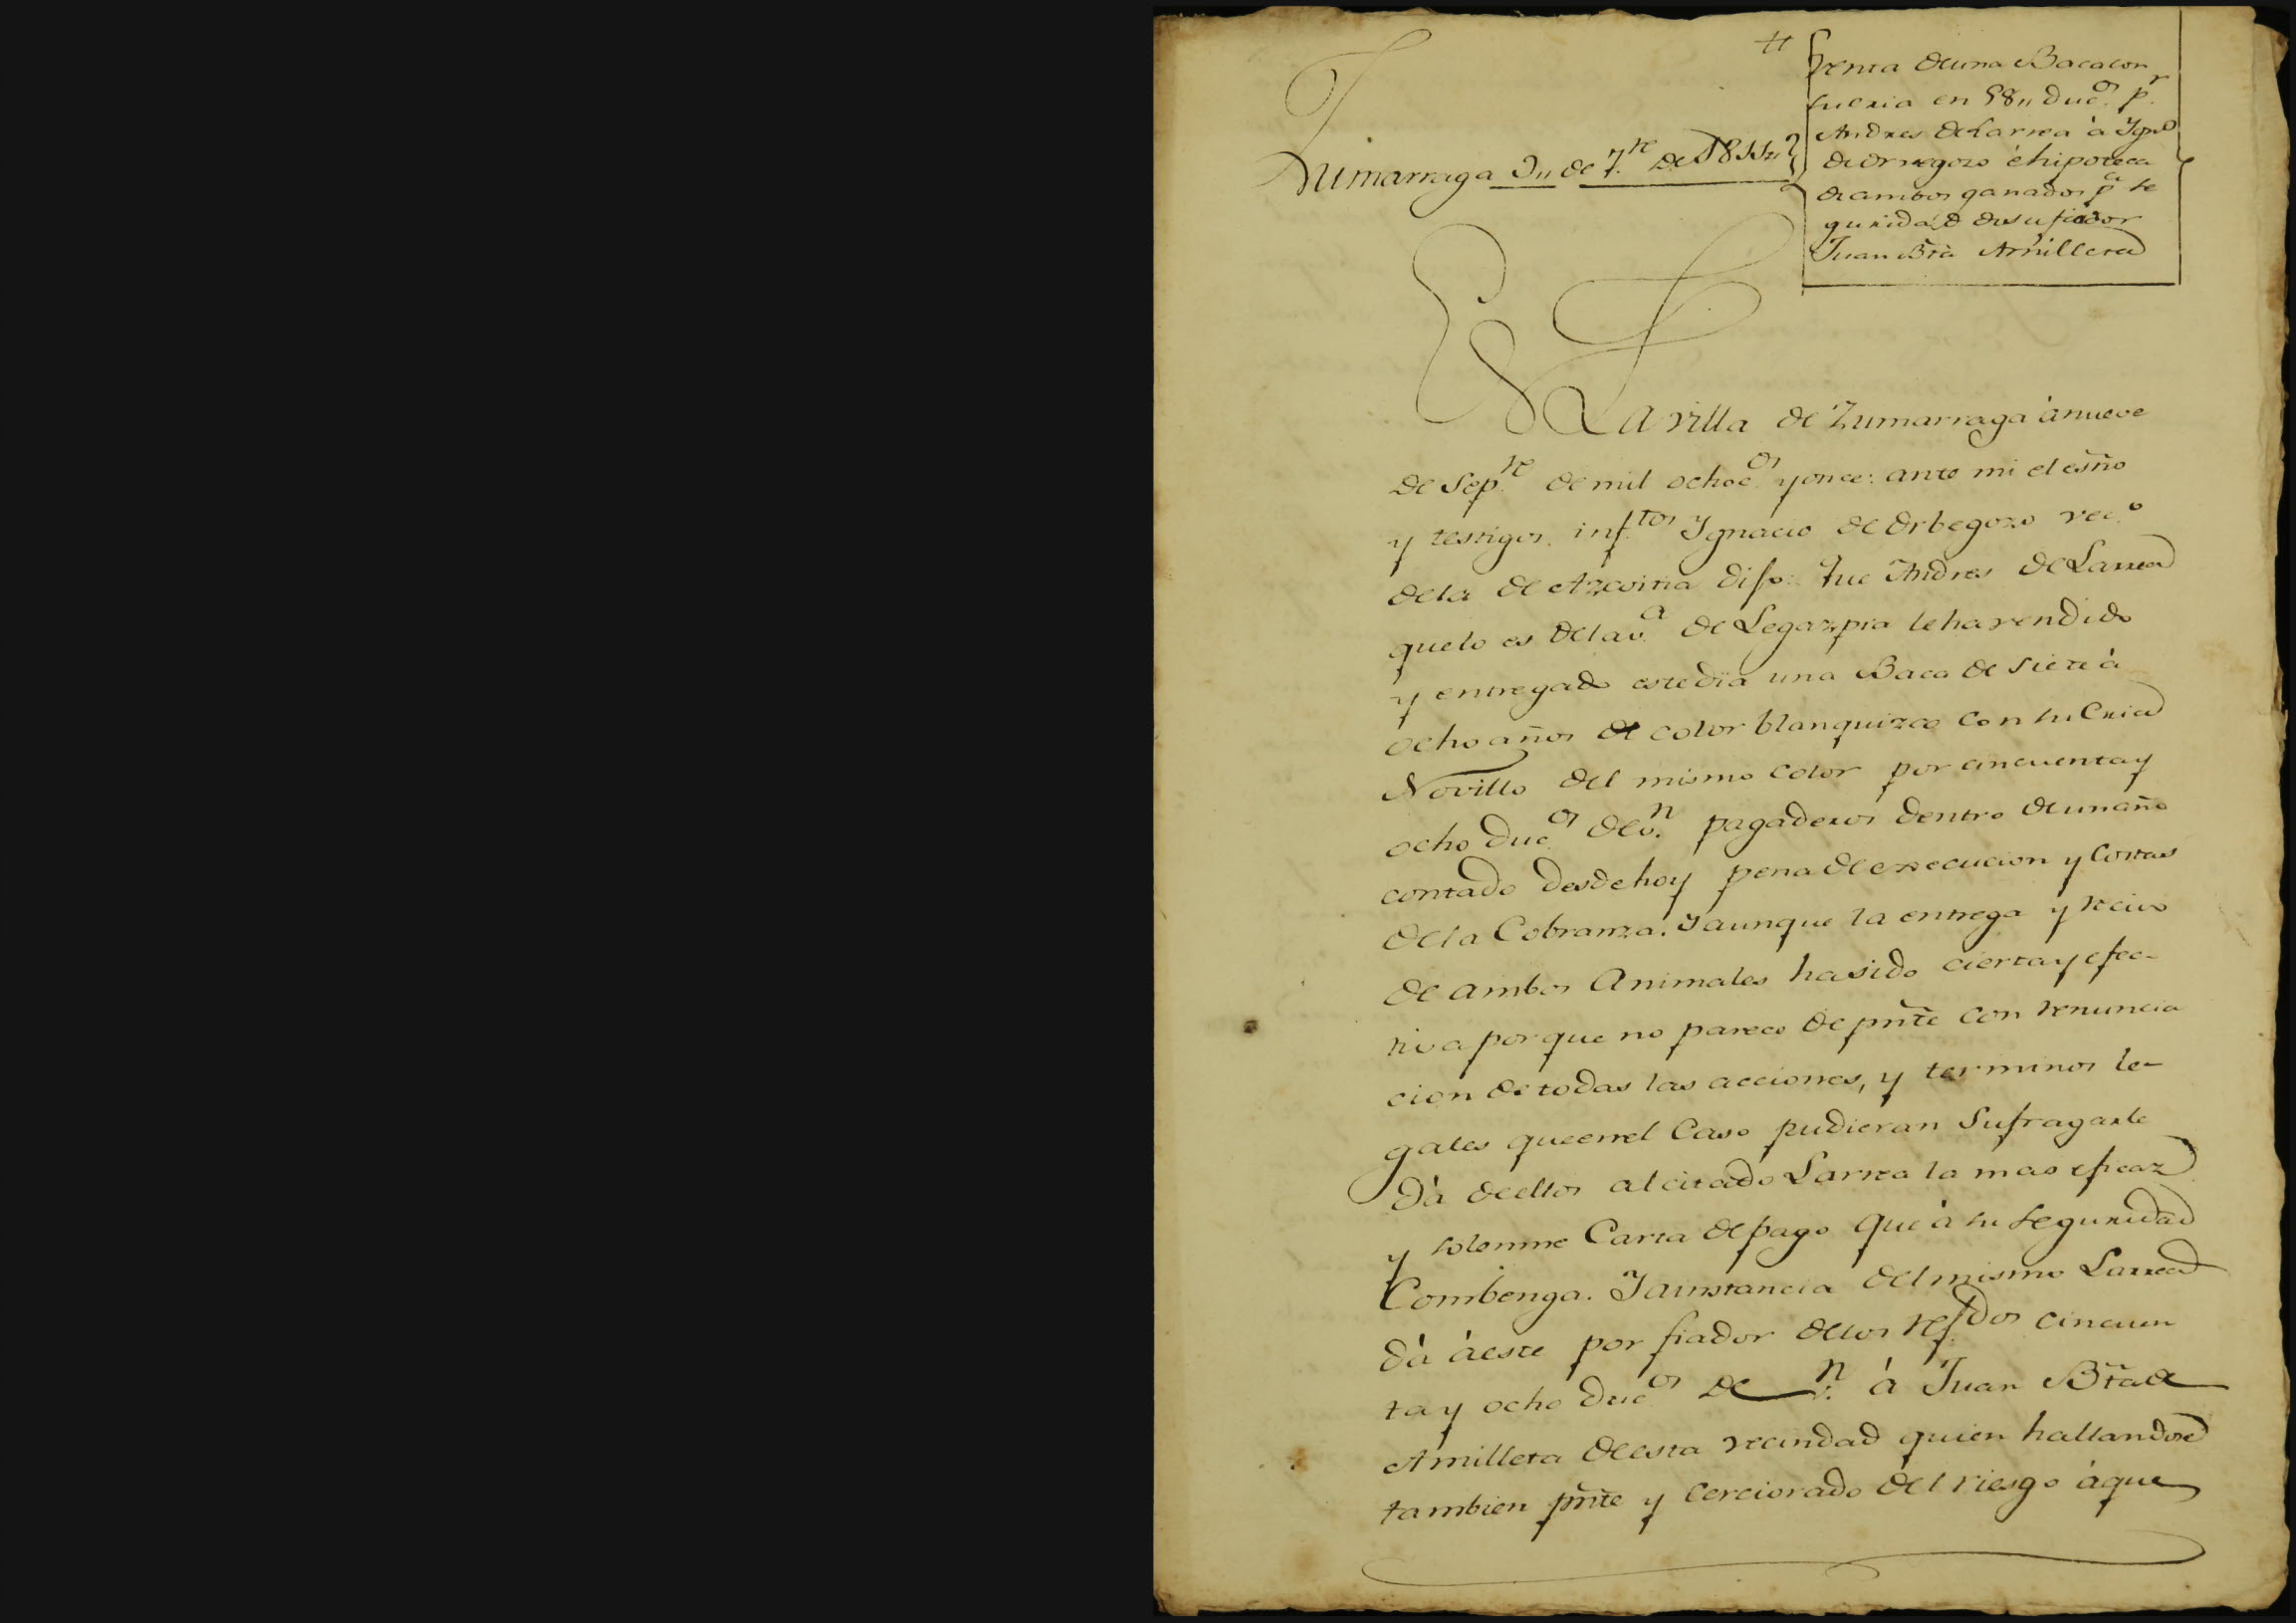 #
Zumarraga 9,, de 7.re de 1811,,
Venta de una Baca con
su cria en 58,, duc.os p.r
Andres de Larrea à Ygn.o
de Orvegozo è hipoteca
de ambos ganados p.a se
guridad de su fiador
Juan Bta Amilleta
En La villa de Zumarraga à nueve
de Sep.re de mil ochoc.os y once: ante mi el esño
y testigos inf.tos Ygnacio de Orbegozo vec.o
de la de Azcoitia dijo: Que Andres de Larrea
que lo es de la v.a de Legazpia le ha vendido
y entregado este dia una Baca de siete à
ocho años de color blanquizco con su Cria
Novillo del mismo color por cincuenta y
ocho duc.os de v.n pagaderos dentro de un año
contado desde hoy pena de execucion y Costas
de la Cobranza. Y aunque la entrega y recivo
de ambos Animales ha sido cierta y efec-
tiva porque no parece de pñte con renuncia
cion de todas las acciones, y terminos le-
gales que en el Caso pudieran Sufragarle
dà de ellos al citado Larrea la mas eficaz
y solemne Carta de pago que à su seguridad
Combenga. Y a instancia del mismo Larrea
dà à este por fiador de los ref.dos cincuen
ta y ocho duc.os de v.n à Juan Bta de
Amilleta de esta vecindad quien hallandose
tambien pñte y cerciorado del riesgo à que